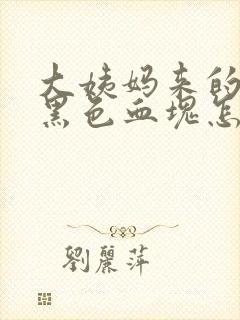 大姨妈来的
黑色血块怎
劉麗萍